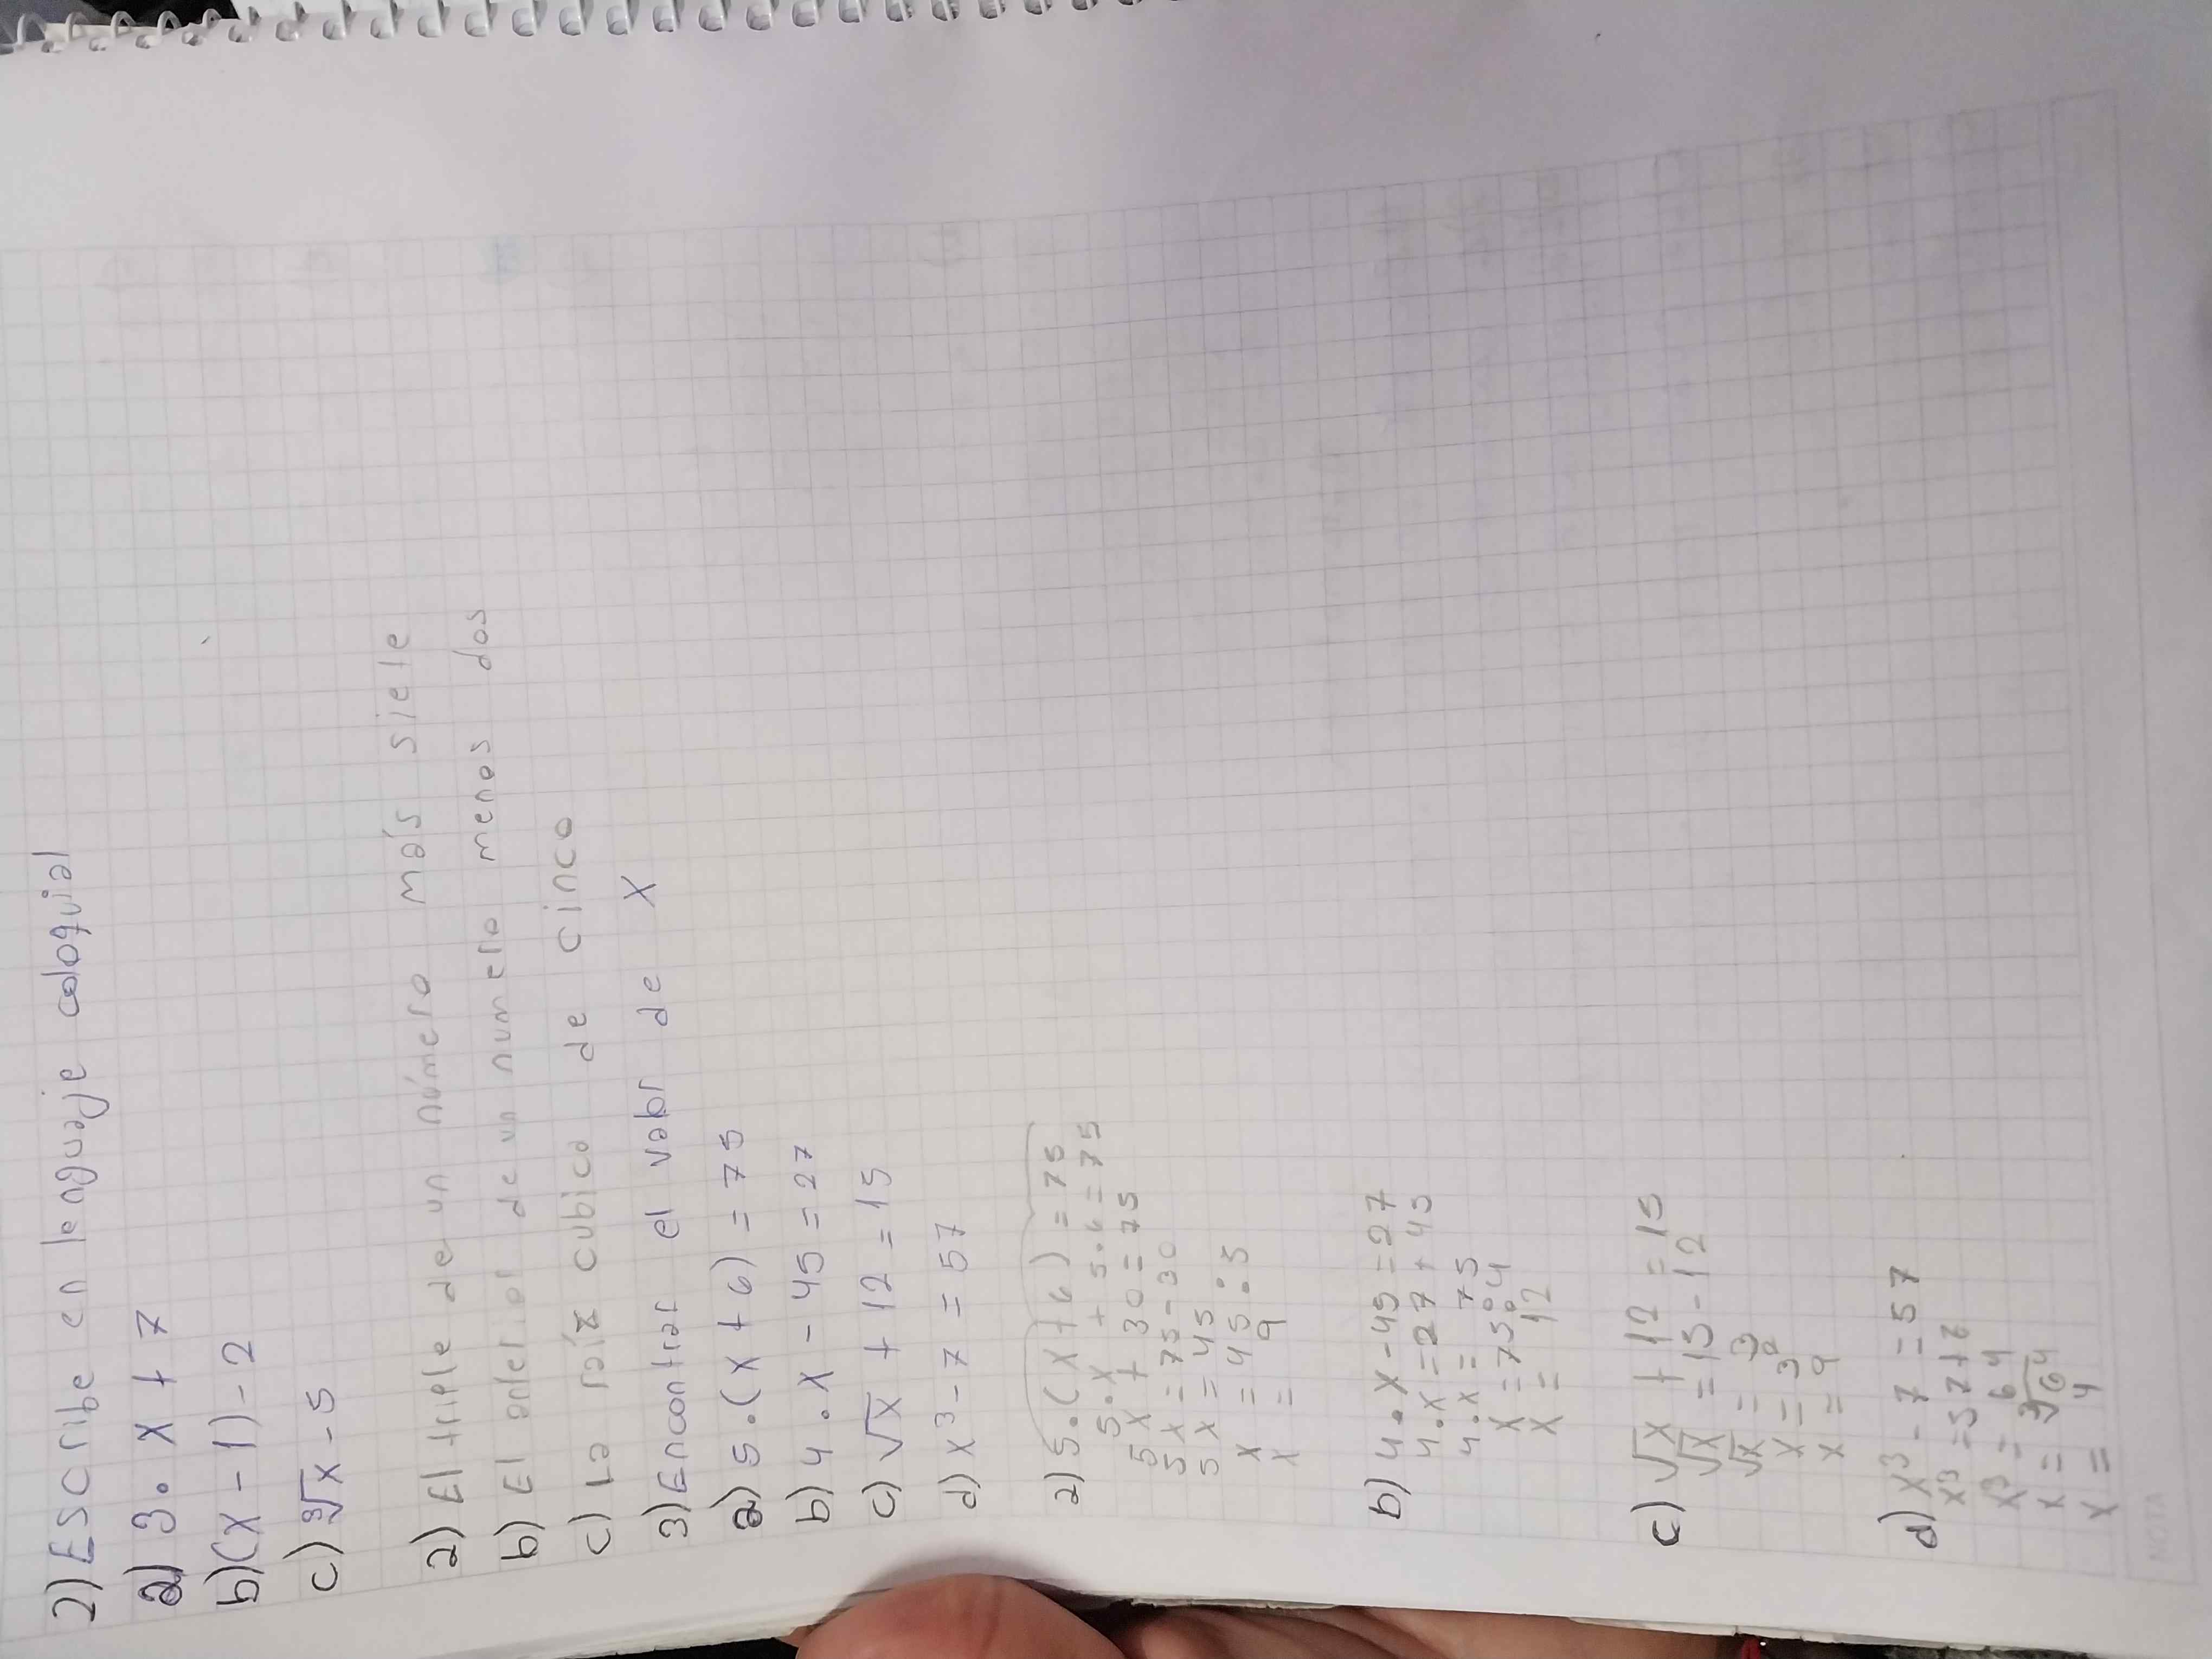 2) Escribe en lenguaje coloquial
a) 3. x + 7
b) (x - 1) - 2
c) ³√x - 5
a) El triple de un número más siete
b) El anterior de un numero menos dos
c) La raíz cubica de cinco
3) Encontrar el valor de X
a) 5.(x + 6) = 75
b) 4.x - 45 = 27
c) √x + 12 = 15
d) x³ - 7 = 57
a) 5.(x + 6) = 75
5.x + 5.6 = 75
5x + 30 = 75
5x = 75 - 30
5x = 45
x = 45 : 5
x = 9
b) 4.x - 45 = 27
4.x = 27 + 45
4.x = 75
x = 75 : 4
x = 12
c) √x + 12 = 15
√x = 15 - 12
√x = 3
x = 3²
x = 9
d) x³ - 7 = 57
x³ = 57 + 7
x³ = 64
x = ³√64
x = 4
NOTA